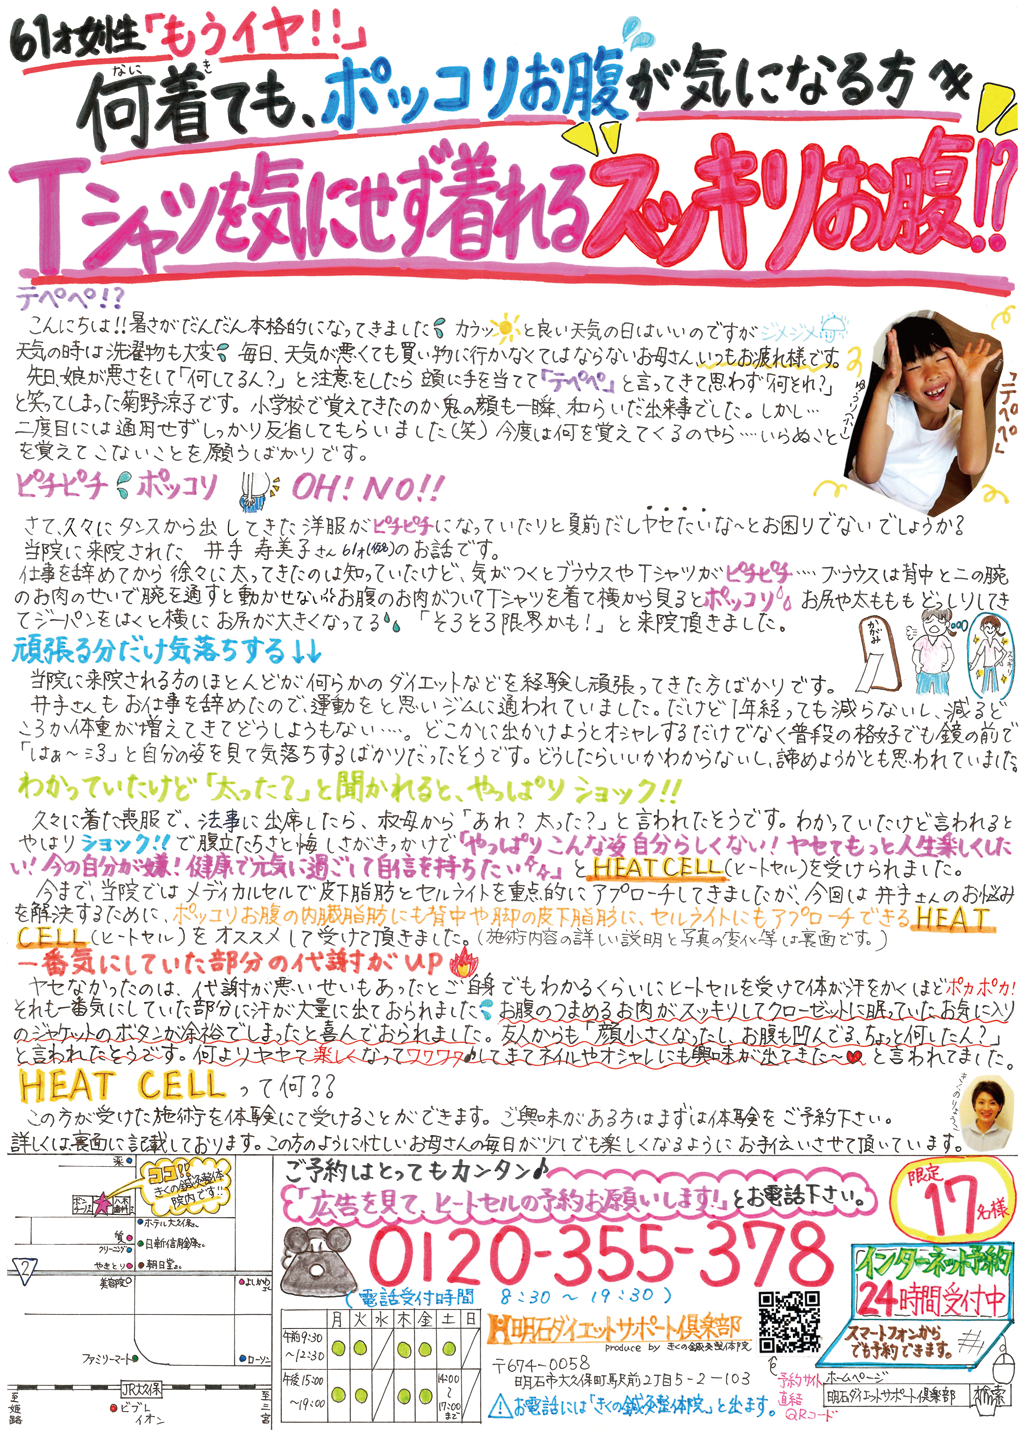 61才女性「もうイヤ!!」
何着ても、ポッコリお腹が気になる方へ
なに き
Tシャツを気にせず着れるスッキリお腹!?
テペペ!?
こんにちは!!暑さがだんだん本格的になってきました カラッと良い天気の日はいいのですがジメジメ
天気の時は洗濯物も大変 毎日、天気が悪くても買い物に行かなくてはならないお母さんいつもお疲れ様です。
先日、娘が悪さをして「何してるん?」と注意をしたら頭に手を当てて「テペペ」と言ってきて思わず「何それ?」
と笑ってしまった菊野涼子です。小学校で覚えてきたのか鬼の顔も一瞬、和らいだ出来事でした。しかし…
二度目には通用せずしっかり反省してもらいました(笑)今度は何を覚えてくるのやら…いらぬこと
を覚えてこないことを願うばかりです。
「テペペ」
ピチピチ ポッコリ OH! NO!!
さて、久々にタンスから出してきた洋服がピチピチになっていたりと夏前だしヤセたいな〜とお困りでないでしょうか?
当院に来院された 井手 寿美子さん61才(仮名)のお話です。
仕事を辞めてから徐々に太ってきたのは知っていたけど、気がつくとブラウスやTシャツがピチピチ…ブラウスは背中と二の腕
のお肉のせいで腕を通すと動かせない お腹のお肉がついてTシャツを着て横から見るとポッコリ お尻や太ももも どっしりしてき
てジーパンをはくと横にお尻が大きくなってる 「そろそろ限界かも!」と来院頂きました。
かがみ
スッキリ
頑張る分だけ気落ちする↓↓
当院に来院される方のほとんどが何らかのダイエットなどを経験し頑張ってきた方ばかりです。
井手さんもお仕事を辞めたので、運動をと思いジムに通われていました。だけど1年経っても減らないし、減るど
ころか体重が増えてきてどうしようもない…。どこかに出かけようとオシャレするだけでなく普段の格好でも鏡の前で
「はぁ〜」と自分の姿を見て気落ちするばかりだったそうです。どうしたらいいかわからないし、諦めようかとも思われていました。
わかっていたけど「太った?」と聞かれると、やっぱりショック!!
久々に着た喪服で、法事に出席したら、叔母から「あれ?太った?」と言われたそうです。わかっていたけど言われると
やはりショック!!で腹立たしさと悔しさがきっかけで「やっぱりこんな姿自分らしくない!ヤセてもっと人生楽しくした
い!今の自分が嫌!健康で元気に過ごして自信を持ちたい」とHEATCELL(ヒートセル)を受けられました。
今まで、当院ではメディカルセルで皮下脂肪とセルライトを重点的にアプローチしてきましたが、今回は井手さんのお悩み
を解決するために、ポッコリお腹の内臓脂肪にも背中や脚の皮下脂肪に、セルライトにもアプローチできるHEAT
CELL(ヒートセル)をオススメして受けて頂きました。(施術内容の詳しい説明と写真の変化等は裏面です。)
一番気にしていた部分の代謝がUP
ヤセなかったのは、代謝が悪いせいもあったとご自身でもわかるくらいにヒートセルを受けて体が汗をかくほどポカポカ!
それも一番気にしていた部分に汗が大量に出ておられました お腹のつまめるお肉がスッキリしてクローゼットに眠っていたお気に入り
のジャケットのボタンが余裕でしまったと喜んでおられました。友人からも「顔小さくなったし、お腹も凹んでる、ちょっと何したん?」
と言われたそうです。何よりヤセて楽しくなってワクワク♪してきてネイルやオシャレにも興味が出てきた〜 と言われてました。
HEAT CELLって何??
この方が受けた施術を体験にて受けることができます。ご興味がある方はまずは体験をご予約下さい。
詳しくは、裏面に記載しております。この方のように忙しいお母さんの毎日が少しでも楽しくなるようにお手伝いさせて頂いています。
きくのりょうこ
薬
ココ!!
きくの鍼灸整体院内です!!
ホテル大久保
質
日新信用金庫
クリーニング
やきとり
朝日堂
2
美容院
よしかわ
ファミリーマート
ローソン
JR大久保
至姫路
至三宮
ビブレ
イオン
ご予約はとってもカンタン♪
「広告を見て、ヒートセルの予約お願いします!」とお電話下さい。
0120-355-378
(電話受付時間 8:30〜19:30)
月 火 水 木 金 土 日
午前9:30〜12:30
午後15:00〜19:00
14:00〜17:00まで
明石ダイエットサポート倶楽部
produce by きくの鍼灸整体院
〒674-0058
明石市大久保町駅前2丁目5-2-103
お電話には「きくの鍼灸整体院」と出ます。
限定17名様
インターネット予約
24時間受付中
スマートフォンから
でも予約できます。
予約サイト
直結
QRコード
ホームページ
明石ダイエットサポート倶楽部 検索